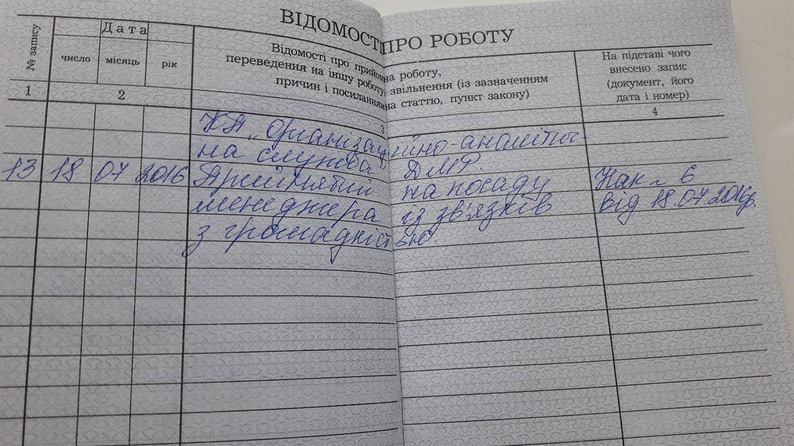 ВІДОМОСТІ ПРО РОБОТУ
№ запису
Дата
число місяць рік
Відомості про прийом на роботу,
переведення на іншу роботу, звільнення (із зазначенням
причин і посиланням на статтю, пункт закону)
На підставі чого
внесено запис
(документ, його
дата і номер)
1 2 3 4
КП „Організаційно-аналітич-
на служба" ДМР
13 18 07 2016 Прийнятий на посаду Наказ 6
менеджера із зв'язків від 18.07.2016р.
з громадкістью.